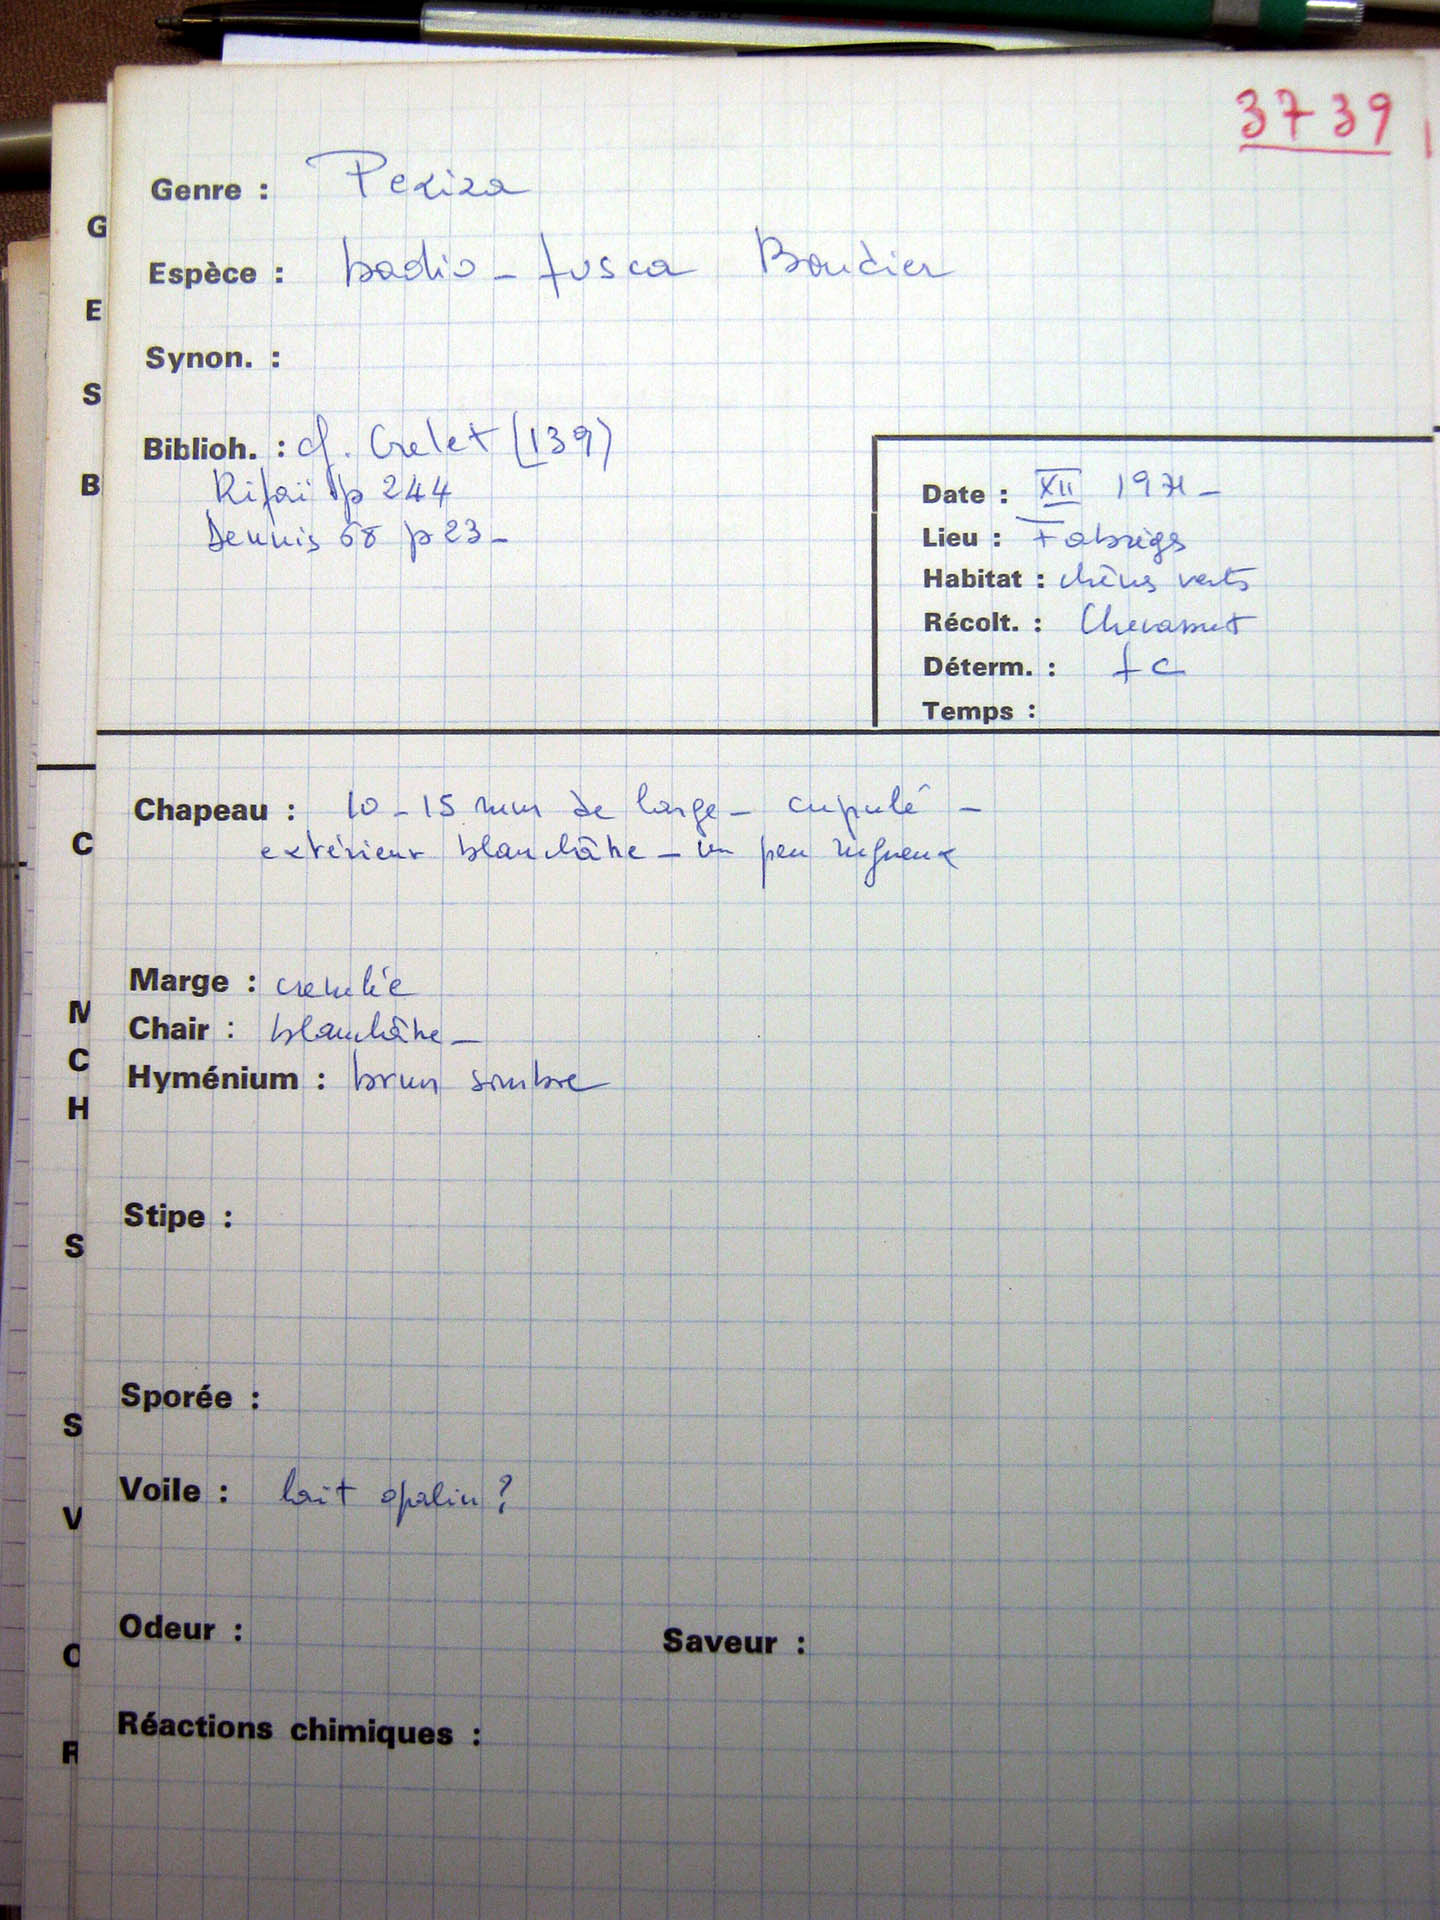 3739
Genre : Peziza
Espèce : badio-fusca Boudier
Synon. :
Biblioh. : cf. Grelet (139)
Rifaï p 244
Dennis 68 p 23 -
Date : XII 1971 -
Lieu : Fabrègs
Habitat : chênes verts
Récolt. : Chevassut
Déterm. : fc
Temps :
Chapeau : 10 - 15 mm de large - cupulé -
extérieur blanchâtre - un peu rugueux
Marge : crénelée
Chair : blanchâtre -
Hyménium : brun sombre
Stipe :
Sporée :
Voile : lait opalin ?
Odeur :
Saveur :
Réactions chimiques :
G
E
S
B
C
M
C
H
S
S
V